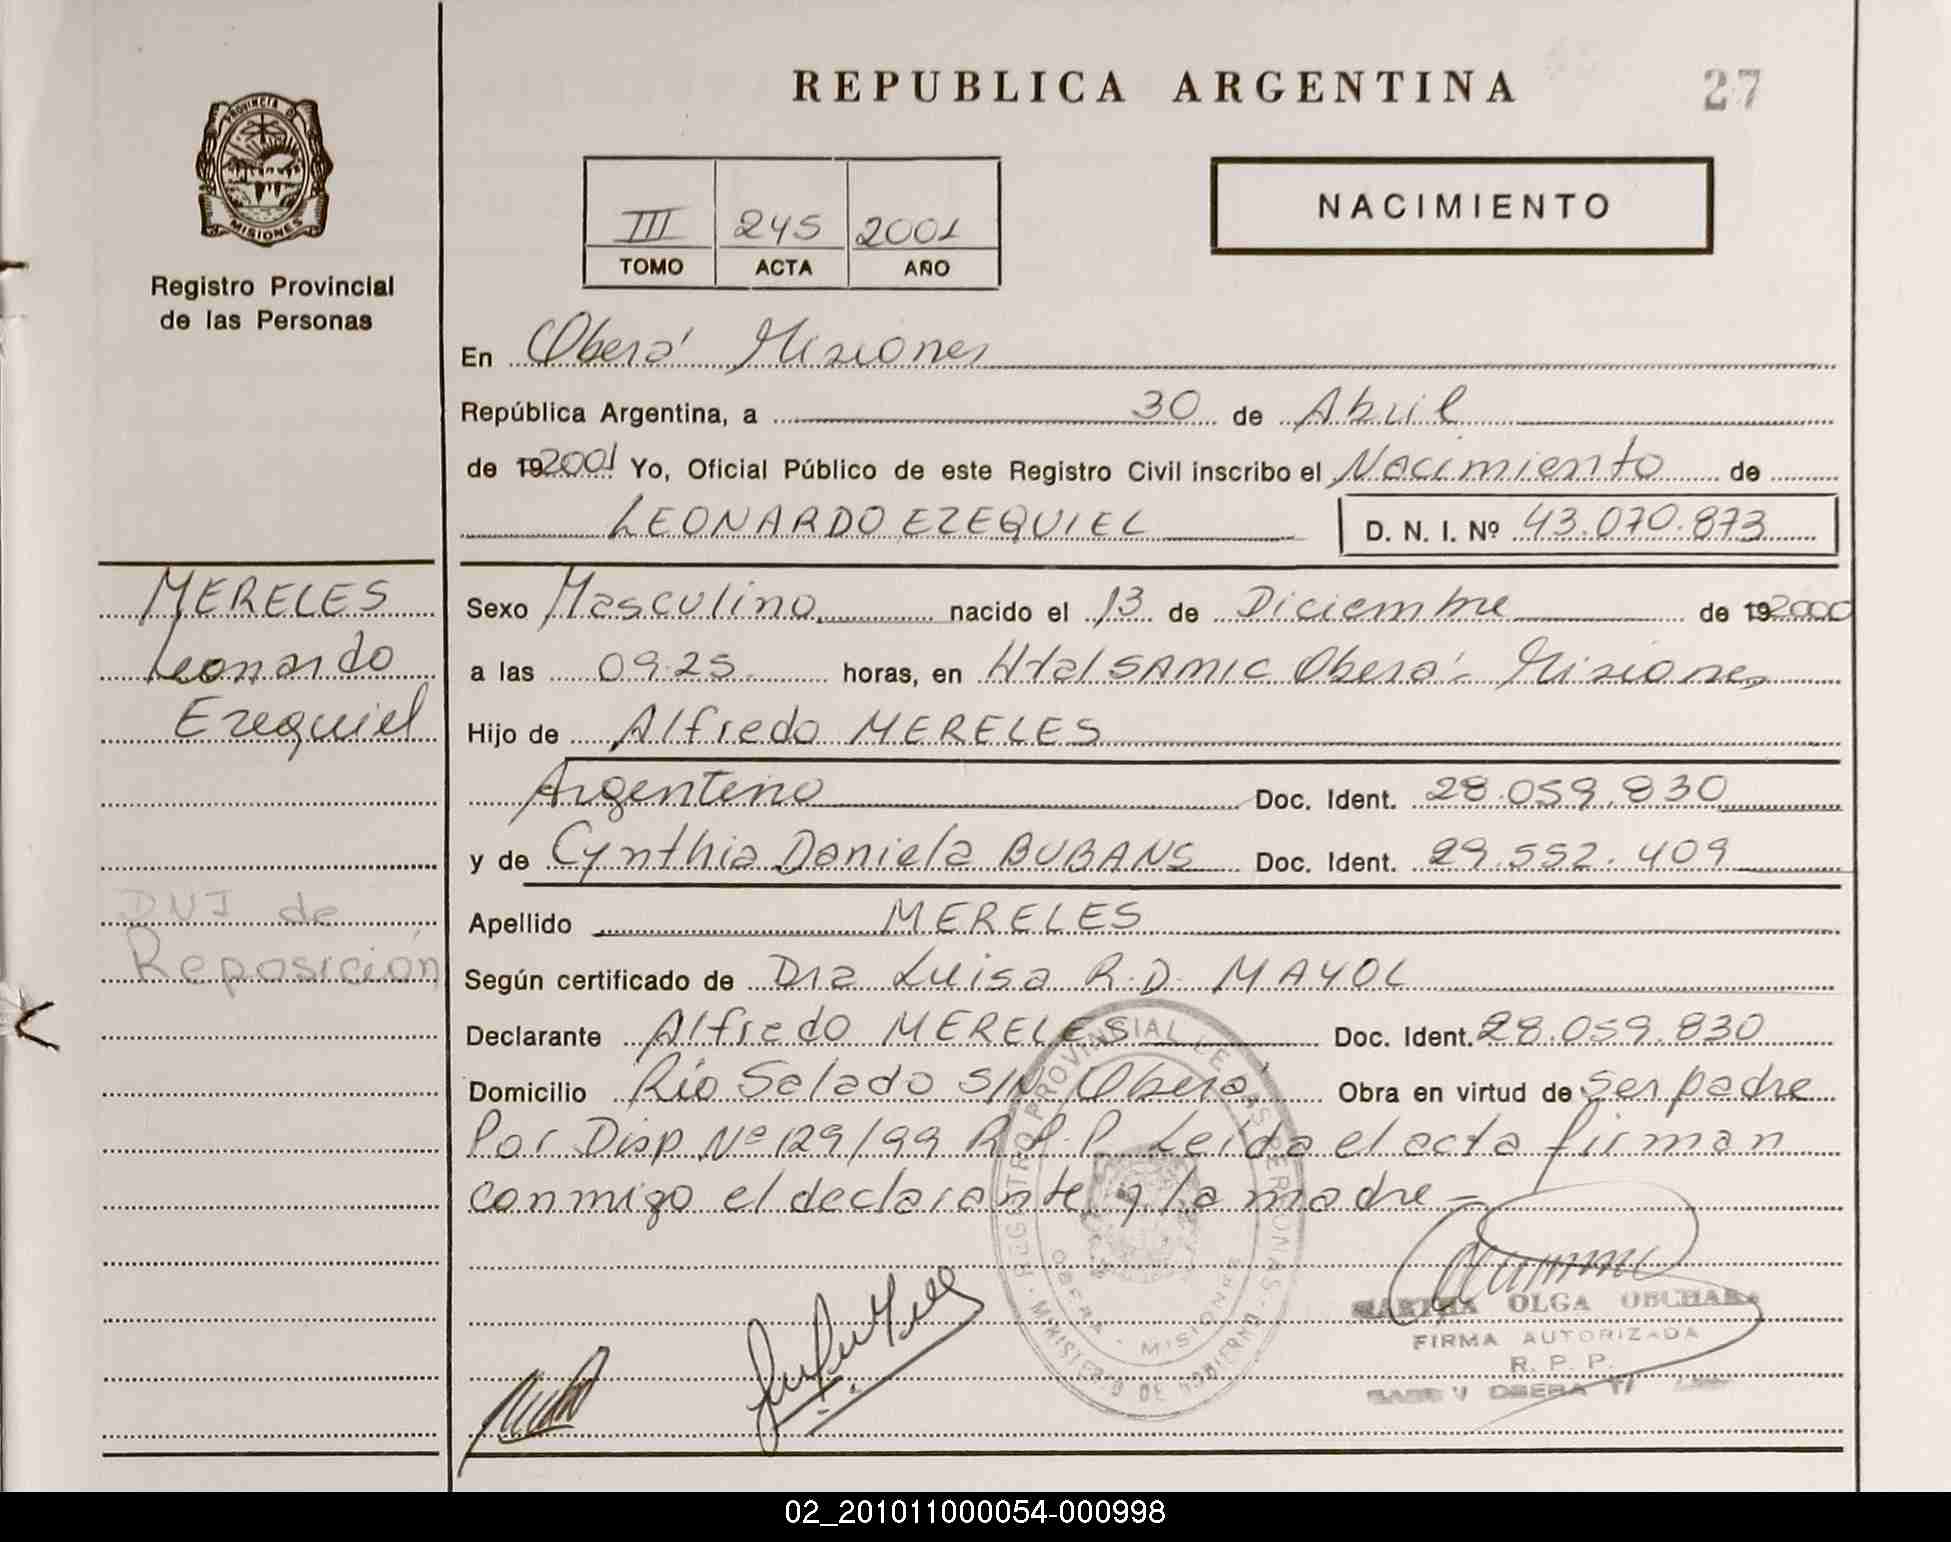 PROVINCIA D
MISIONES
Registro Provincial
de las Personas
REPUBLICA ARGENTINA
27
III 245 2001
TOMO ACTA AÑO
NACIMIENTO
En Oberá Misiones
República Argentina, a 30 de Abril
de 192001 Yo, Oficial Público de este Registro Civil inscribo el Nacimiento de
LEONARDO EZEQUIEL D. N. I. Nº 43.070.873
MERELES
Leonardo
Ezequiel
Sexo Masculino nacido el 13 de Diciembre de 192000
a las 09.25 horas, en Htal SAMIC Oberá - Misiones
Hijo de Alfredo MERELES
Argentino Doc. Ident. 28.059.830
y de Cynthia Daniela BUBANS Doc. Ident. 29.552.409
DUJ de
Reposición
Apellido MERELES
Según certificado de Dra Luisa R.D. MAYOL
Declarante Alfredo MERELES Doc. Ident. 28.059.830
Domicilio Río Salado S/N Oberá Obra en virtud de ser padre
Por Disp Nº 129/99 R.P.P. Leida el acta firman
conmigo el declarante y la madre -
REGISTRO PROVINSIAL DE LAS PERSONAS
MINISTERIO DE GOBIERNO
OBERA - MISIONES
MARTHA OLGA
FIRMA AUTORIZADA
R. P. P.
OBERA
02_201011000054-000998